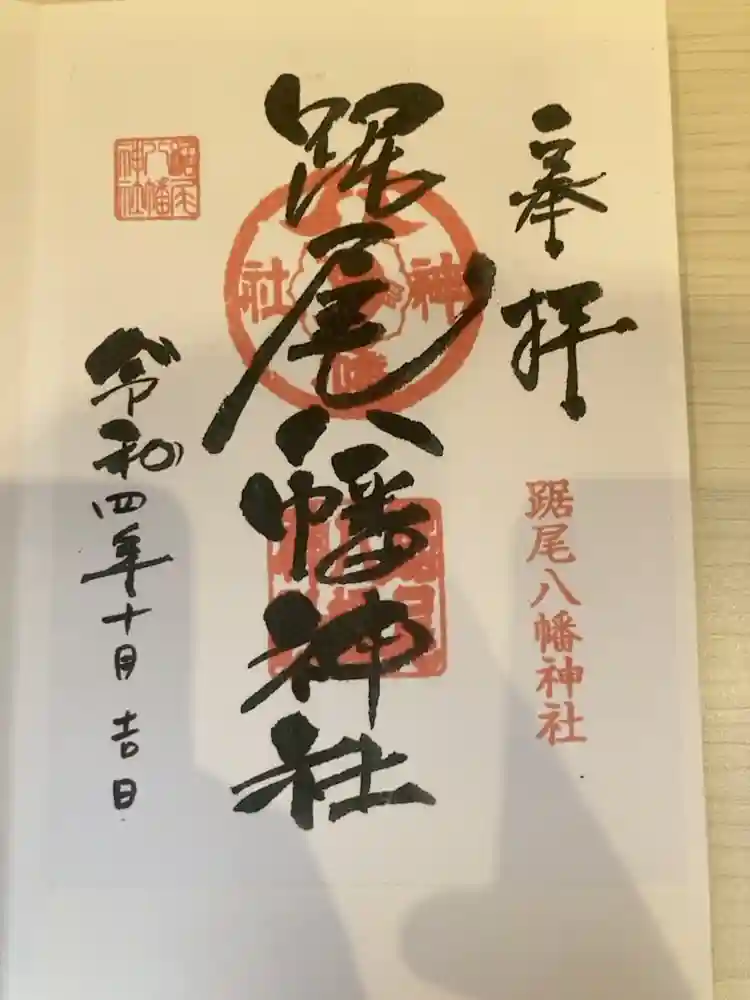 奉拝
踞尾八幡神社
踞尾八幡神社
神
社
幡
令和四年十月吉日
踞尾
八幡
神社